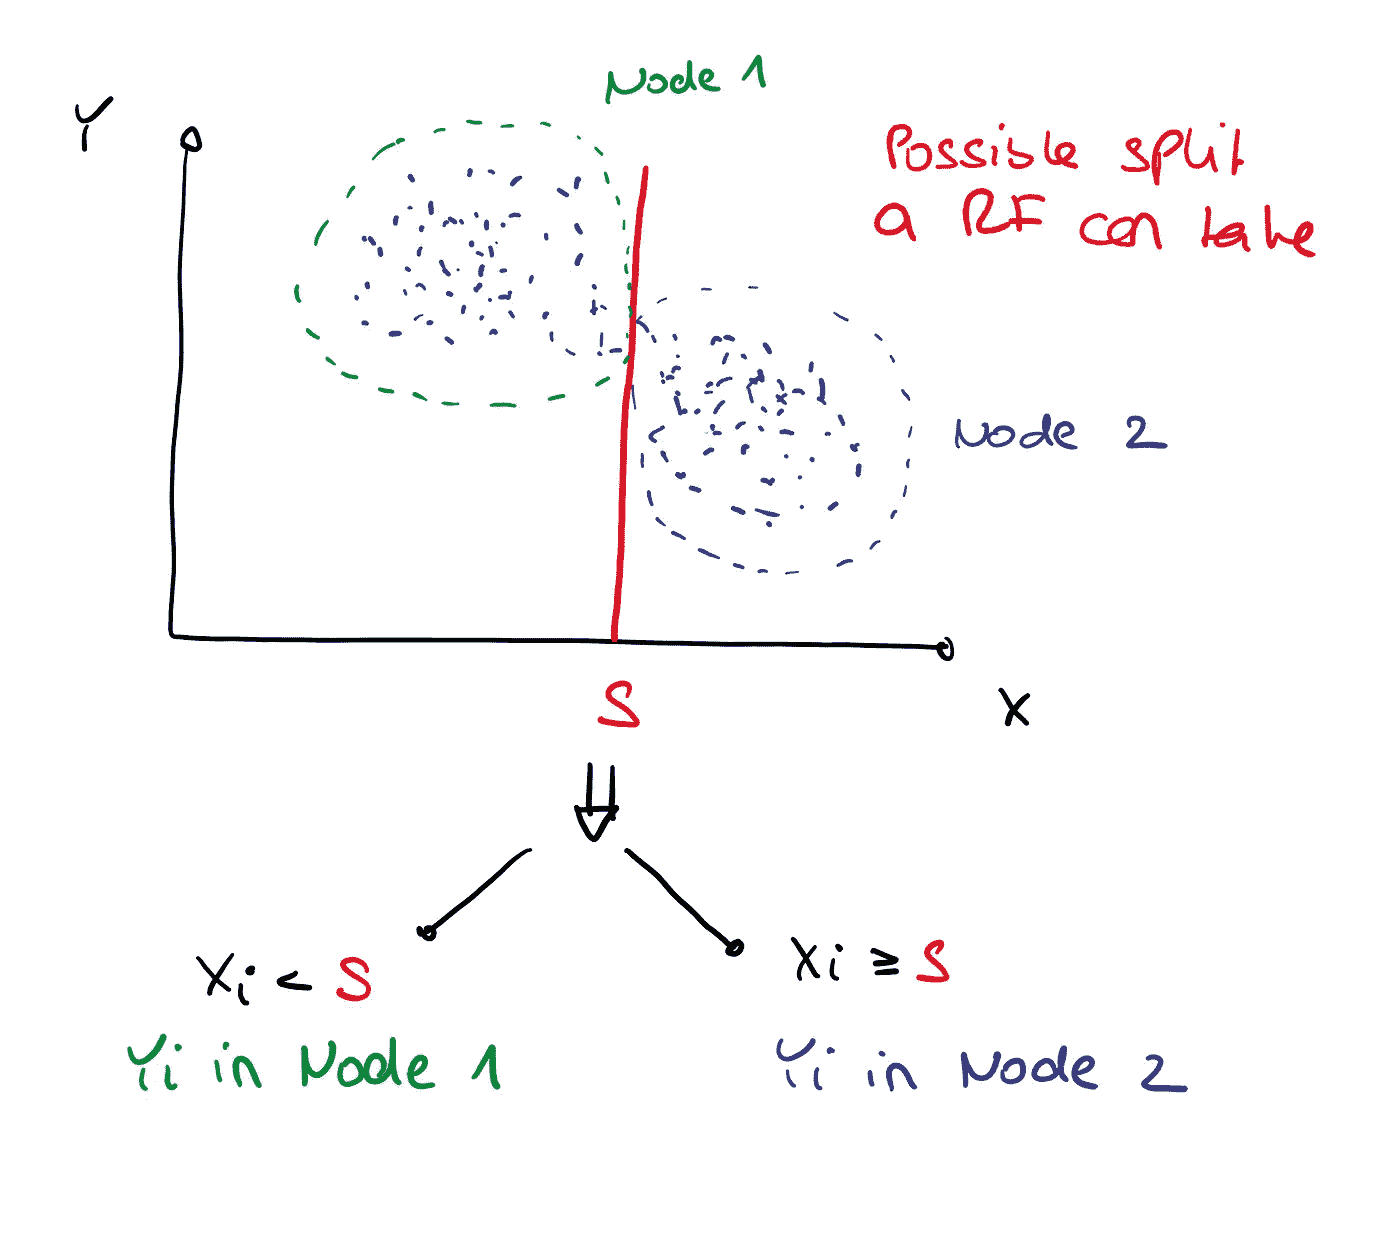 Node 1
Y
Possible split
a RF can take
Node 2
S
X
Xi < S
Xi ≥ S
Yi in Node 1
Yi in Node 2